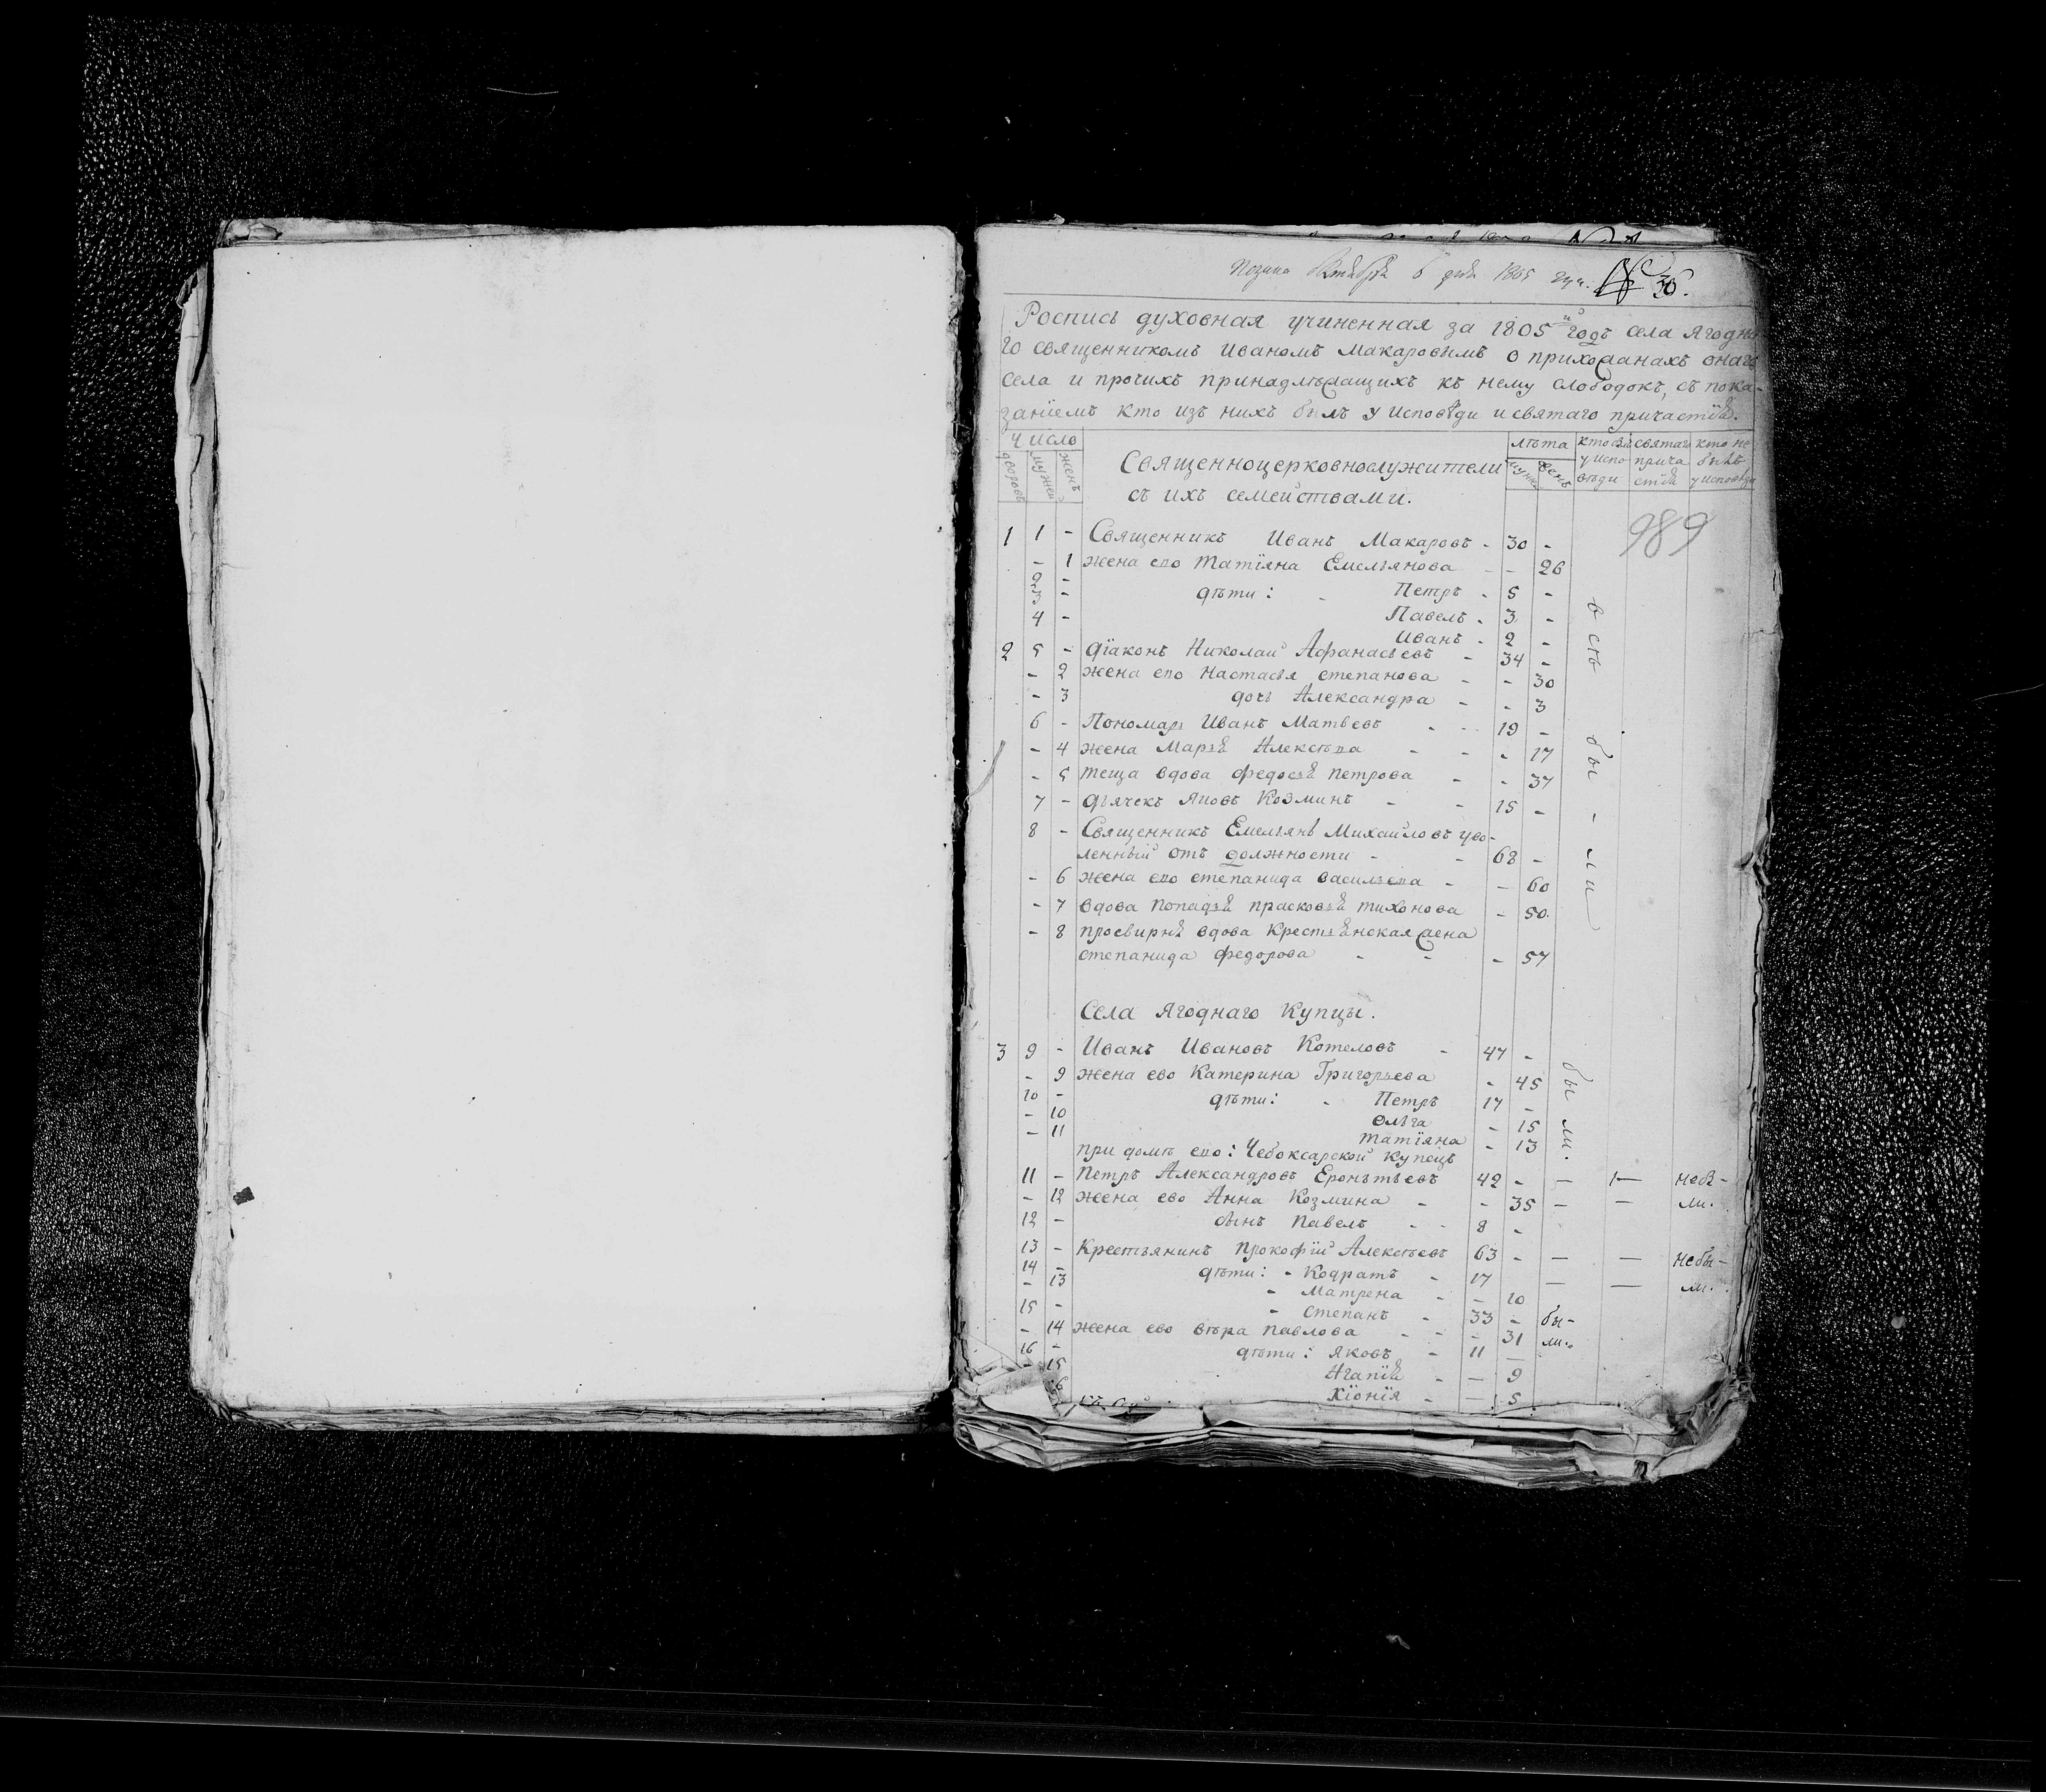 Октября 6 дня 1805 № 36.
Роспись духовная учиненная за 1805й годъ села Ягодна
го священникомъ Иваномъ Макаровымъ о прихожанахъ онаго
села и протчихъ принадлѣжащихъ къ нему слободокъ, съ пока-
занїемъ кто изъ нихъ былъ у исповѣди и святаго причастїя.
Число
дворовъ мужей женъ
Священноцерковнослужители
съ ихъ семействами.
лѣта
мужей женъ
кто былъ у испо вѣди
святаго прича стїя
кто не былъ у исповѣди
989
1 1 - Священникъ Иванъ Макаровъ - 30 -
- 1 жена ево Татїяна Емельянова - - 26
2 -
3 - дѣти: - Петръ - 5 -
4 - Павелъ - 3 -
Иванъ - 2 -
2 5 - Дїаконъ Николай Афанасьевъ - 34 -
- 2 жена ево Настасья степанова - - 30
- 3 дочь Александра - - 3
6 - Пономарь Иванъ Матвеевъ - - 19 -
- 4 жена Марья Алексѣева - - - 17
- 5 теща вдова федосья петрова - - 37
7 - Дьячекъ Яковъ Козминъ - - 15 -
8 - Священникъ Емельянъ Михайловъ уво-
ленный отъ должности - - 68 -
- 6 жена ево степанида васильева - - 60
- 7 вдова попадья прасковья тихонова - 50
- 8 просвирня вдова Крестьянская жена
степанида федорова - - - 57
всѣ бы - ли
Села Ягоднаго Купцы.
3 9 - Иванъ Ивановъ Котеловъ - 47 -
- 9 жена ево Катерина Григорьева - 45
10 - дѣти: - Петръ 17 -
- 10 Ольга - 15
- 11 татїяна - 13
были.
при домѣ ево: Чебоксарской купецъ
11 - Петръ Александровъ Еронтьевъ 42 - — — небы-
- 12 жена ево Анна Козмина - - 35 — — ли.
12 - сынъ павелъ - - 8 -
13 - Крестьянинъ прокофїй Алексѣевъ 63 - — — небы-
14 - дѣти: - Кодратъ - 17 — — ли.
- 13 - Матрена - - 10
15 - - степанъ - 33 - бы-
- 14 жена ево вѣра павлова - - - 31 ли.
16 - дѣти: яковъ - 11 —
- 15 Агапїя - — 9
Хїонїя - — 5